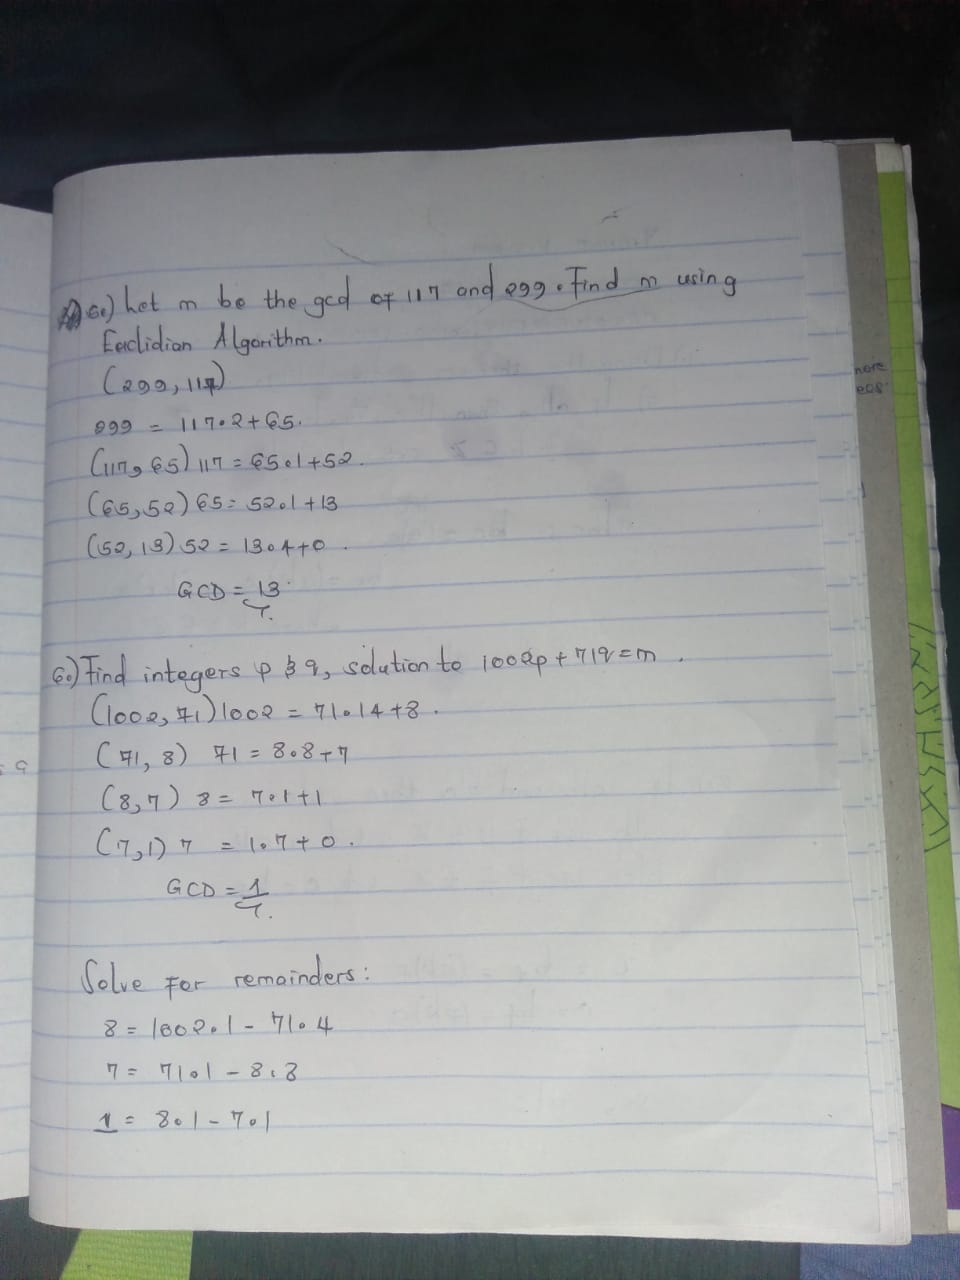 6.) Let m be the gcd of 117 and 299. Find m using
Euclidian Algorithm.
(299, 117)
299 = 117.2+65.
(117, 65) 117 = 65.1+52.
(65,52) 65= 52.1+13
(52, 13) 52 = 13.4+0.
GCD = 13
6.) Find integers p & q, solution to 1002p + 71q = m.
(1002, 71) 1002 = 71.14+8.
(71, 8) 71 = 8.8+7
(8,7) 8 = 7.1+1
(7,1) 7 = 1.7+0.
GCD = 1
Solve For remainders:
8 = 1002.1 - 71.4
7 = 71.1 - 8.8
1 = 8.1 - 7.1
more